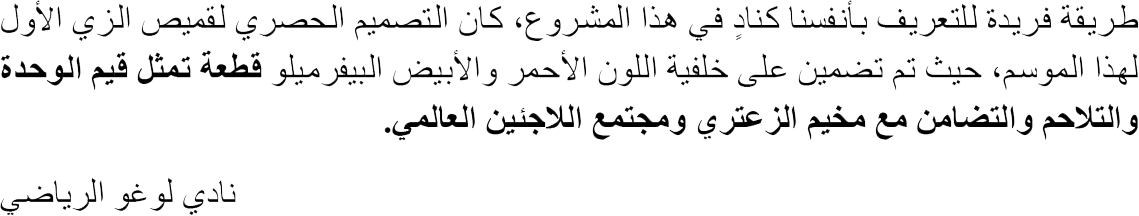 طريقة فريدة للتعريف بأنفسنا كنادٍ في هذا المشروع، كان التصميم الحصري لقميص الزي الأول
لهذا الموسم، حيث تم تضمين على خلفية اللون الأحمر والأبيض البيفرميلو قطعة تمثل قيم الوحدة
والتلاحم والتضامن مع مخيم الزعتري ومجتمع اللاجئين العالمي.
نادي لوغو الرياضي